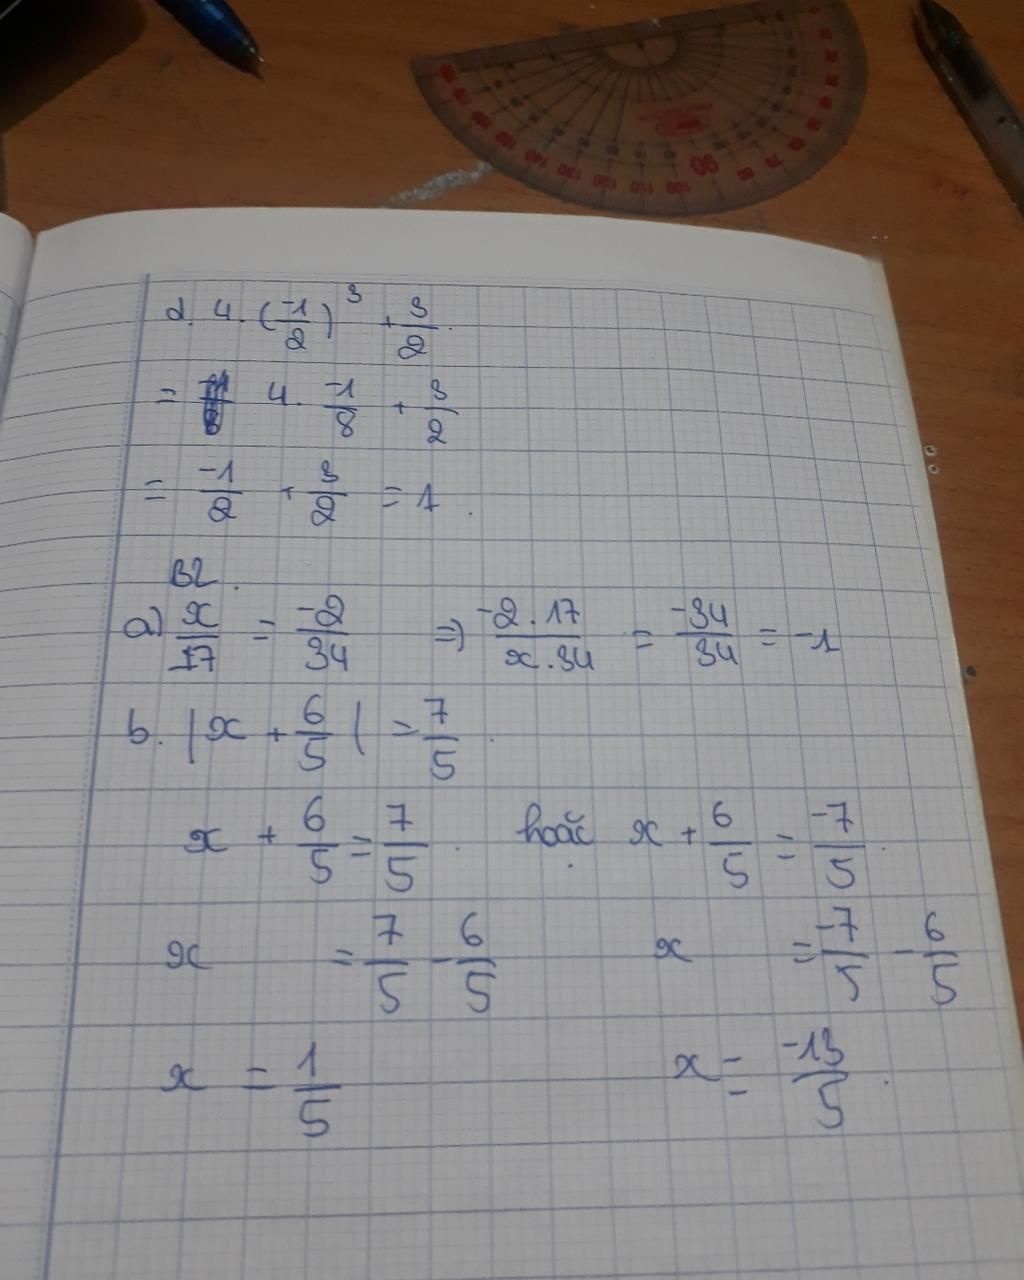 d. 4. (-1/2)³ + 3/2.
= 4. -1/8 + 3/2
= -1/2 + 3/2 = 1.
B2.
a) x/17 = -2/34 => -2.17/x.34 = -34/34 = -1
b. |x + 6/5| = 7/5.
x + 6/5 = 7/5. hoặc x + 6/5 = -7/5.
x = 7/5 - 6/5 x = -7/5 - 6/5
x = 1/5 x = -13/5.